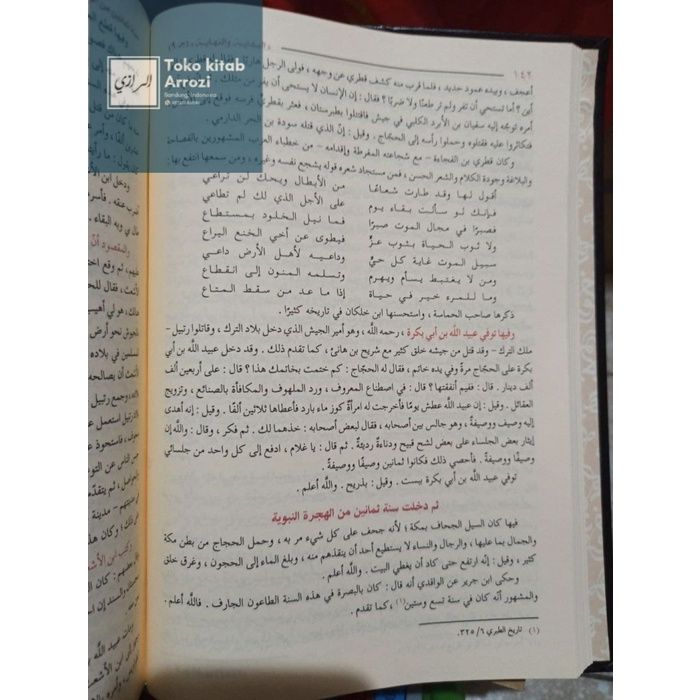 Toko kitab
Arrozi
Bandung, Indonesia
الرازي
١٤٢
أعجف ، وبيده عمود حديد ، فلما قرب منه كشف قطري عن وجهه ، فولى الرجل
أين ؟ أما تستحي أن تفر ولم تر طعنًا ولا ضربًا ؟ فقال : إن الإنسان لا يستحي أن يفر من مثلك .
أمره توجه إليه سفيان بن الأبرد الكلبي في جيش فاقتتلوا بطبرستان ، فعثر بقطري فرسه فوقع
فتكاثروا عليه فقتلوه وحملوا رأسه إلى الحجاج . وقيل : إنّ الذي قتله سودة بن الحر الدارمي .
وكان قطري بن الفجاءة - مع شجاعته المفرطة وإقدامه - من خطباء العرب المشهورين بالفصاحة
والبلاغة وجودة الكلام والشعر الحسن ، فمن مستجاد شعره قوله يشجع نفسه وغيره ، ومن سمعها انتفع بها :
أقول لها وقد طارت شعاعًا من الأبطال ويحك لن تراعي
فإنك لو سألت بقاء يوم على الأجل الذي لك لم تطاعي
فصبرًا في مجال الموت صبرًا فما نيل الخلود بمستطاع
ولا ثوب الحياة بثوب عزٍّ فيطوى عن أخي الخنع اليراع
سبيل الموت غاية كل حيٍّ وداعيه لأهل الأرض داعي
ومن لا يغتبط يسأم ويهرم وتسلمه المنون إلى انقطاع
وما للمرء خير في حياة إذا ما عد من سقط المتاع
ذكرها صاحب الحماسة ، واستحسنها ابن خلكان في تاريخه كثيرًا .
وفيها توفي عبيد اللَّه بن أبي بكرة ، رحمه اللَّه ، وهو أمير الجيش الذي دخل بلاد الترك ، وقاتلوا رتبيل
ملك الترك - وقد قتل من جيشه خلق كثير مع شريح بن هانئ ، كما تقدم ذلك . وقد دخل عبيد اللَّه بن أبي
بكرة على الحجّاج مرة وفي يده خاتم ، فقال له الحجّاج : كم ختمت بخاتمك هذا ؟ قال : على أربعين ألف
ألف دينار . قال : ففيم أنفقتها ؟ قال : في اصطناع المعروف ، ورد الملهوف والمكافأة بالصنائع ، وتزويج
العقائل . وقيل : إن عبيد اللَّه عطش يومًا فأخرجت له امرأة كوز ماء بارد فأعطاها ثلاثين ألفًا . وقيل : إنه أهدى
إليه وصيف ووصيفة ، وهو جالس بين أصحابه ، فقال لبعض أصحابه : خذهما لك . ثم فكر ، وقال : واللَّه إن
إيثار بعض الجلساء على بعض لشح قبيح ودناءةٌ رديئةٌ . ثم قال : يا غلام ، ادفع إلى كل واحد من جلسائي
وصيفًا ووصيفةً . فأحصي ذلك فكانوا ثمانين وصيفًا ووصيفةً .
توفي عبيد اللَّه بن أبي بكرة ببست . وقيل : بذريح . واللَّه أعلم .
ثم دخلت سنة ثمانين من الهجرة النبوية
فيها كان السيل الجحاف بمكة ؛ لأنه جحف على كل شيء مر به ، وحمل الحجاج من بطن مكة
والجمال بما عليها ، والرجال والنساء لا يستطيع أحد أن ينقذهم منه ، وبلغ الماء إلى الحجون ، وغرق خلق
كثير ، وقيل : إنَّه ارتفع حتى كاد أن يغطي البيت . واللَّه أعلم .
وحكى ابن جرير عن الواقدي أنه قال : كان بالبصرة في هذه السنة الطاعون الجارف . فاللَّه أعلم .
والمشهور أنّه كان في سنة تسع وستين (١) ، كما تقدم .
(١) تاريخ الطبري ٦/ ٣٢٥.